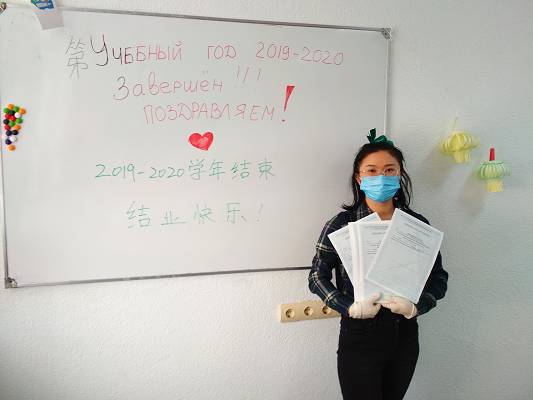 第 Учебный год 2019-2020
Завершён!!!
ПОЗДРАВЛЯЕМ!
2019-2020学年结束
结业快乐!